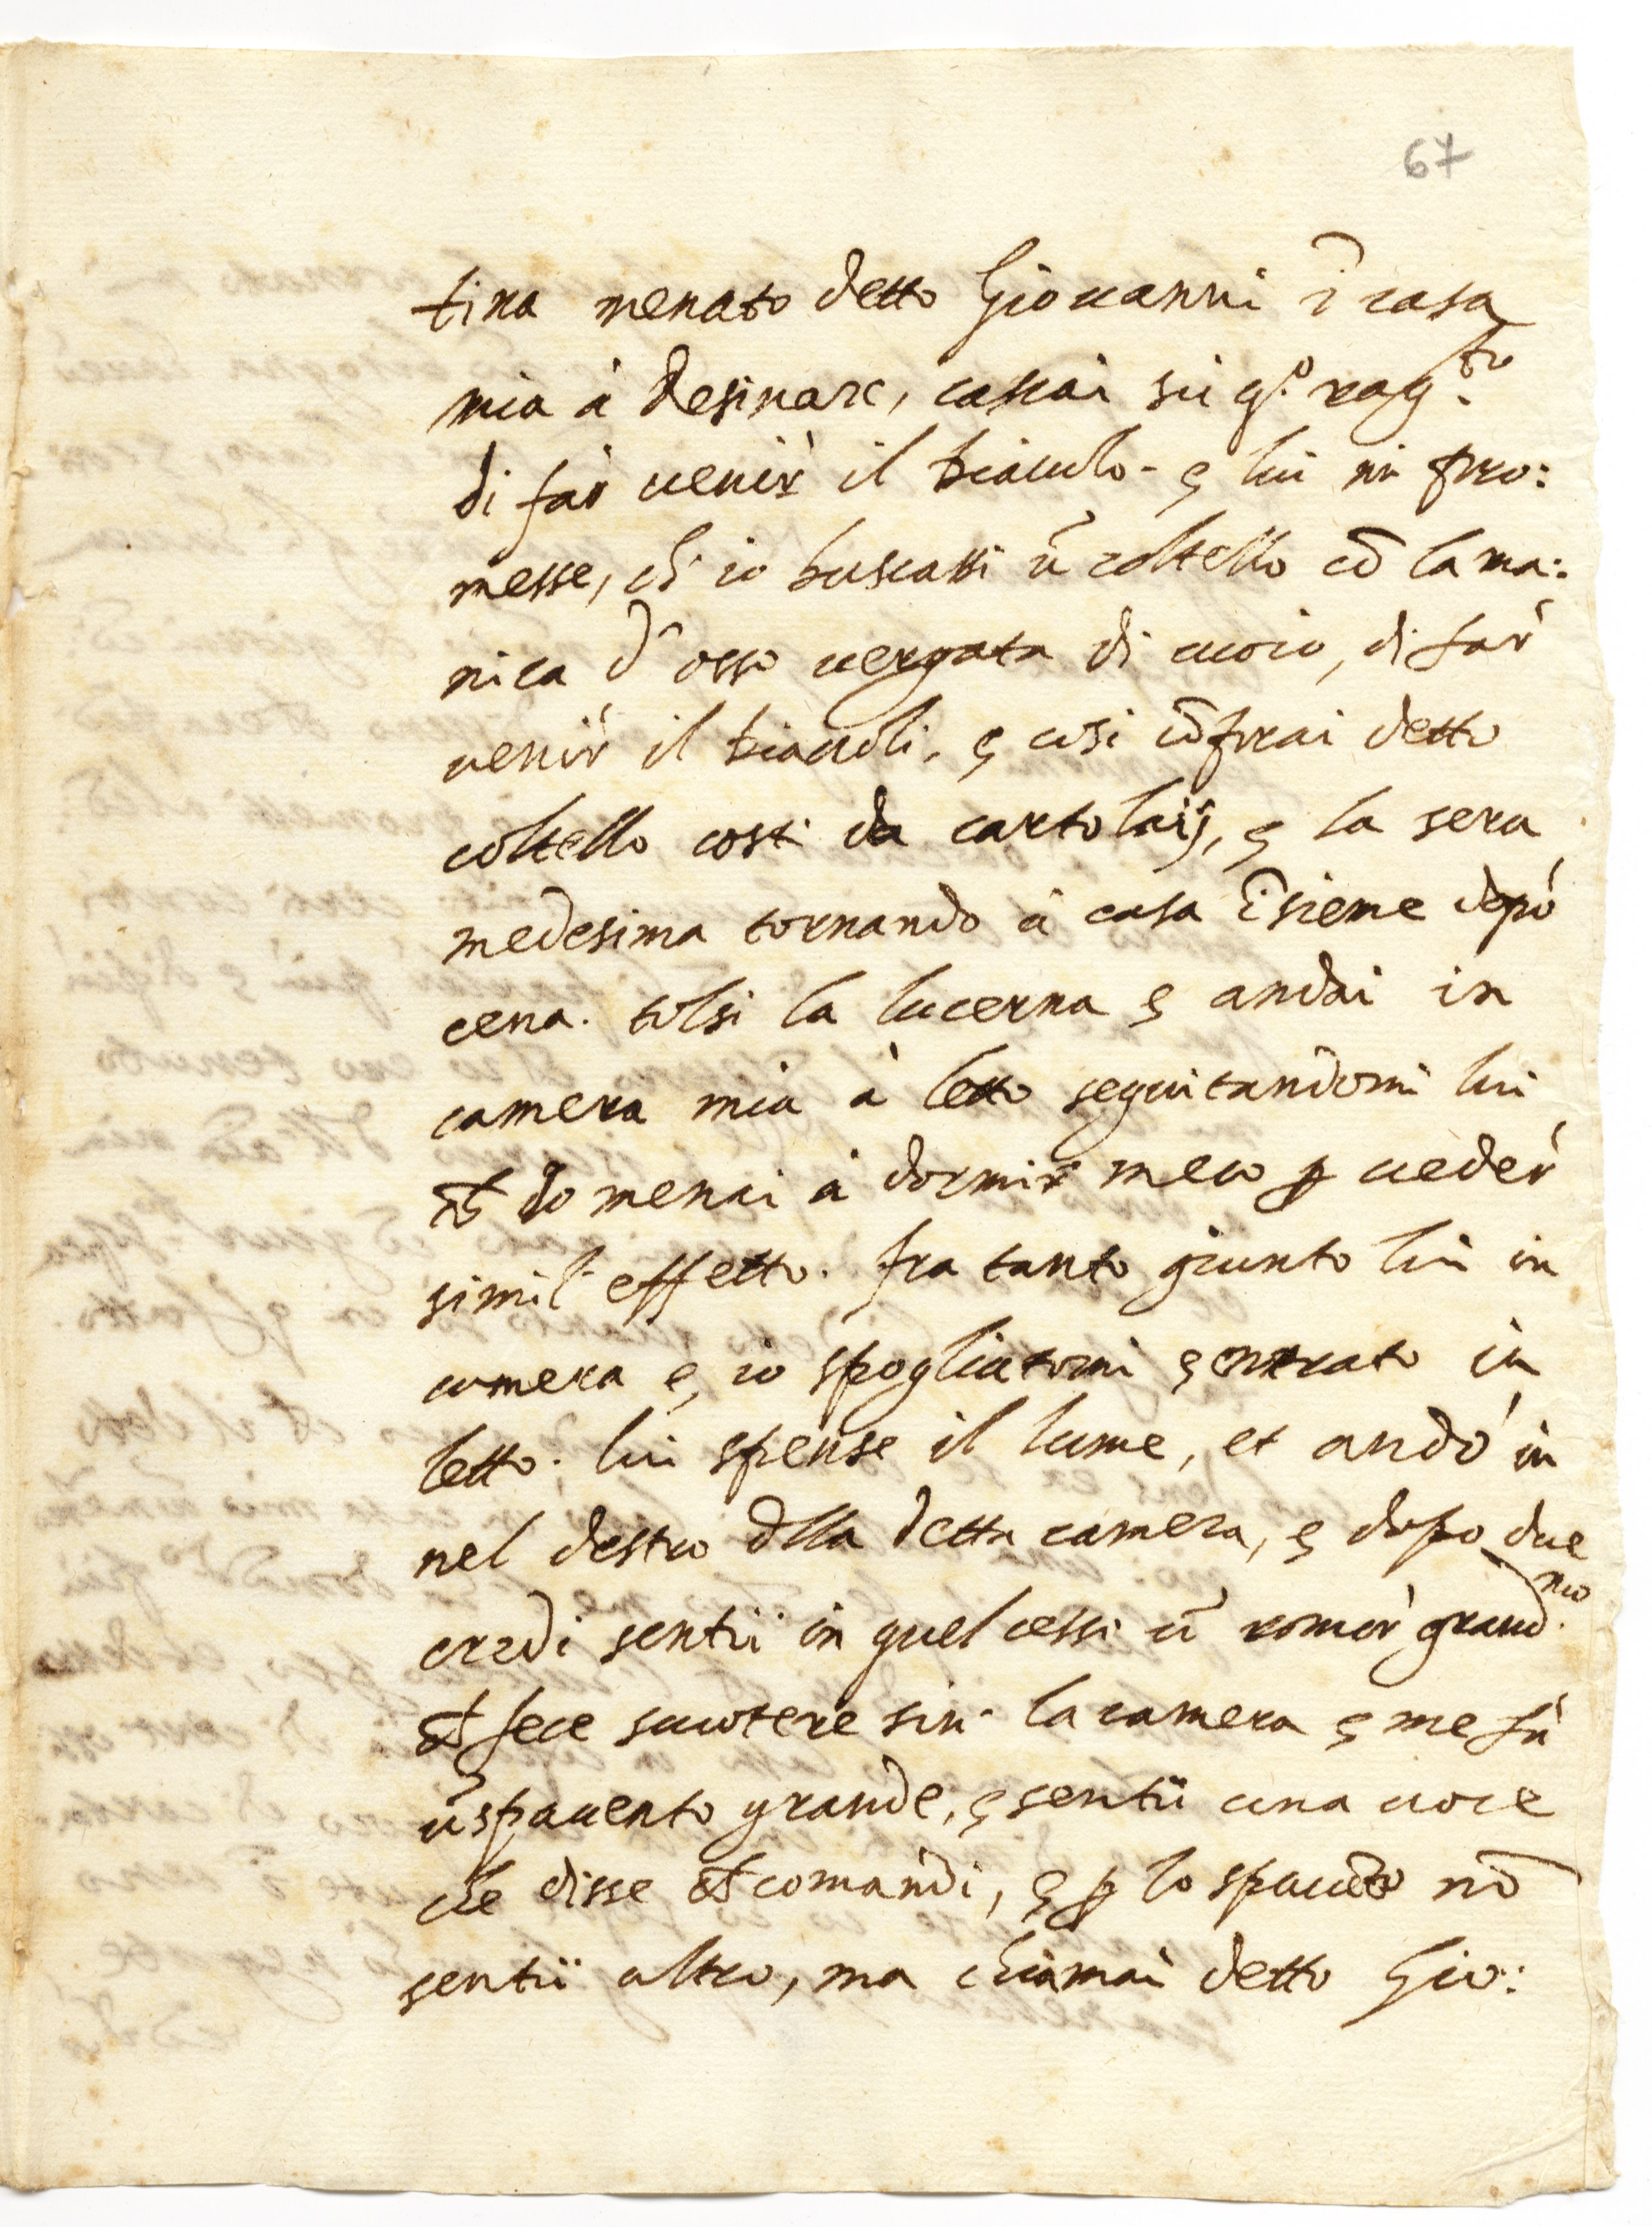 67
tina menato detto Giovanni ĩ casa
mia à desinare, cascai sù q.º rag.to
di far venir il diavolo - e lui mi pro:
messe, ch' io buscassi ũ coltello cõ la ma:
nica d'osso vergata di cuoio, di far
venir il diavoli, e così cõprai detto
coltello costì da cartolaij, e la sera
medesima tornando à casa ĩsieme dopò
cena. tolsi la lucerna e andai in
camera mia à letto seguitandomi lui
et lo menai à dormir meco p veder
simil' effetto. fra tanto giunto lui in
camera e io spogliatomi e entrato in
letto. lui spense il lume, et andò in
nel destro dlla detta camera, e dopo due
credi sentii in quel cessi ũ romor grand.mo
ch fece scuotere sin' la camera e me fù
ũ spavento grande, e sentii una voce
che disse ch comandi, e p lo spavẽto nõ
sentii altro, ma chiamai detto Gio: